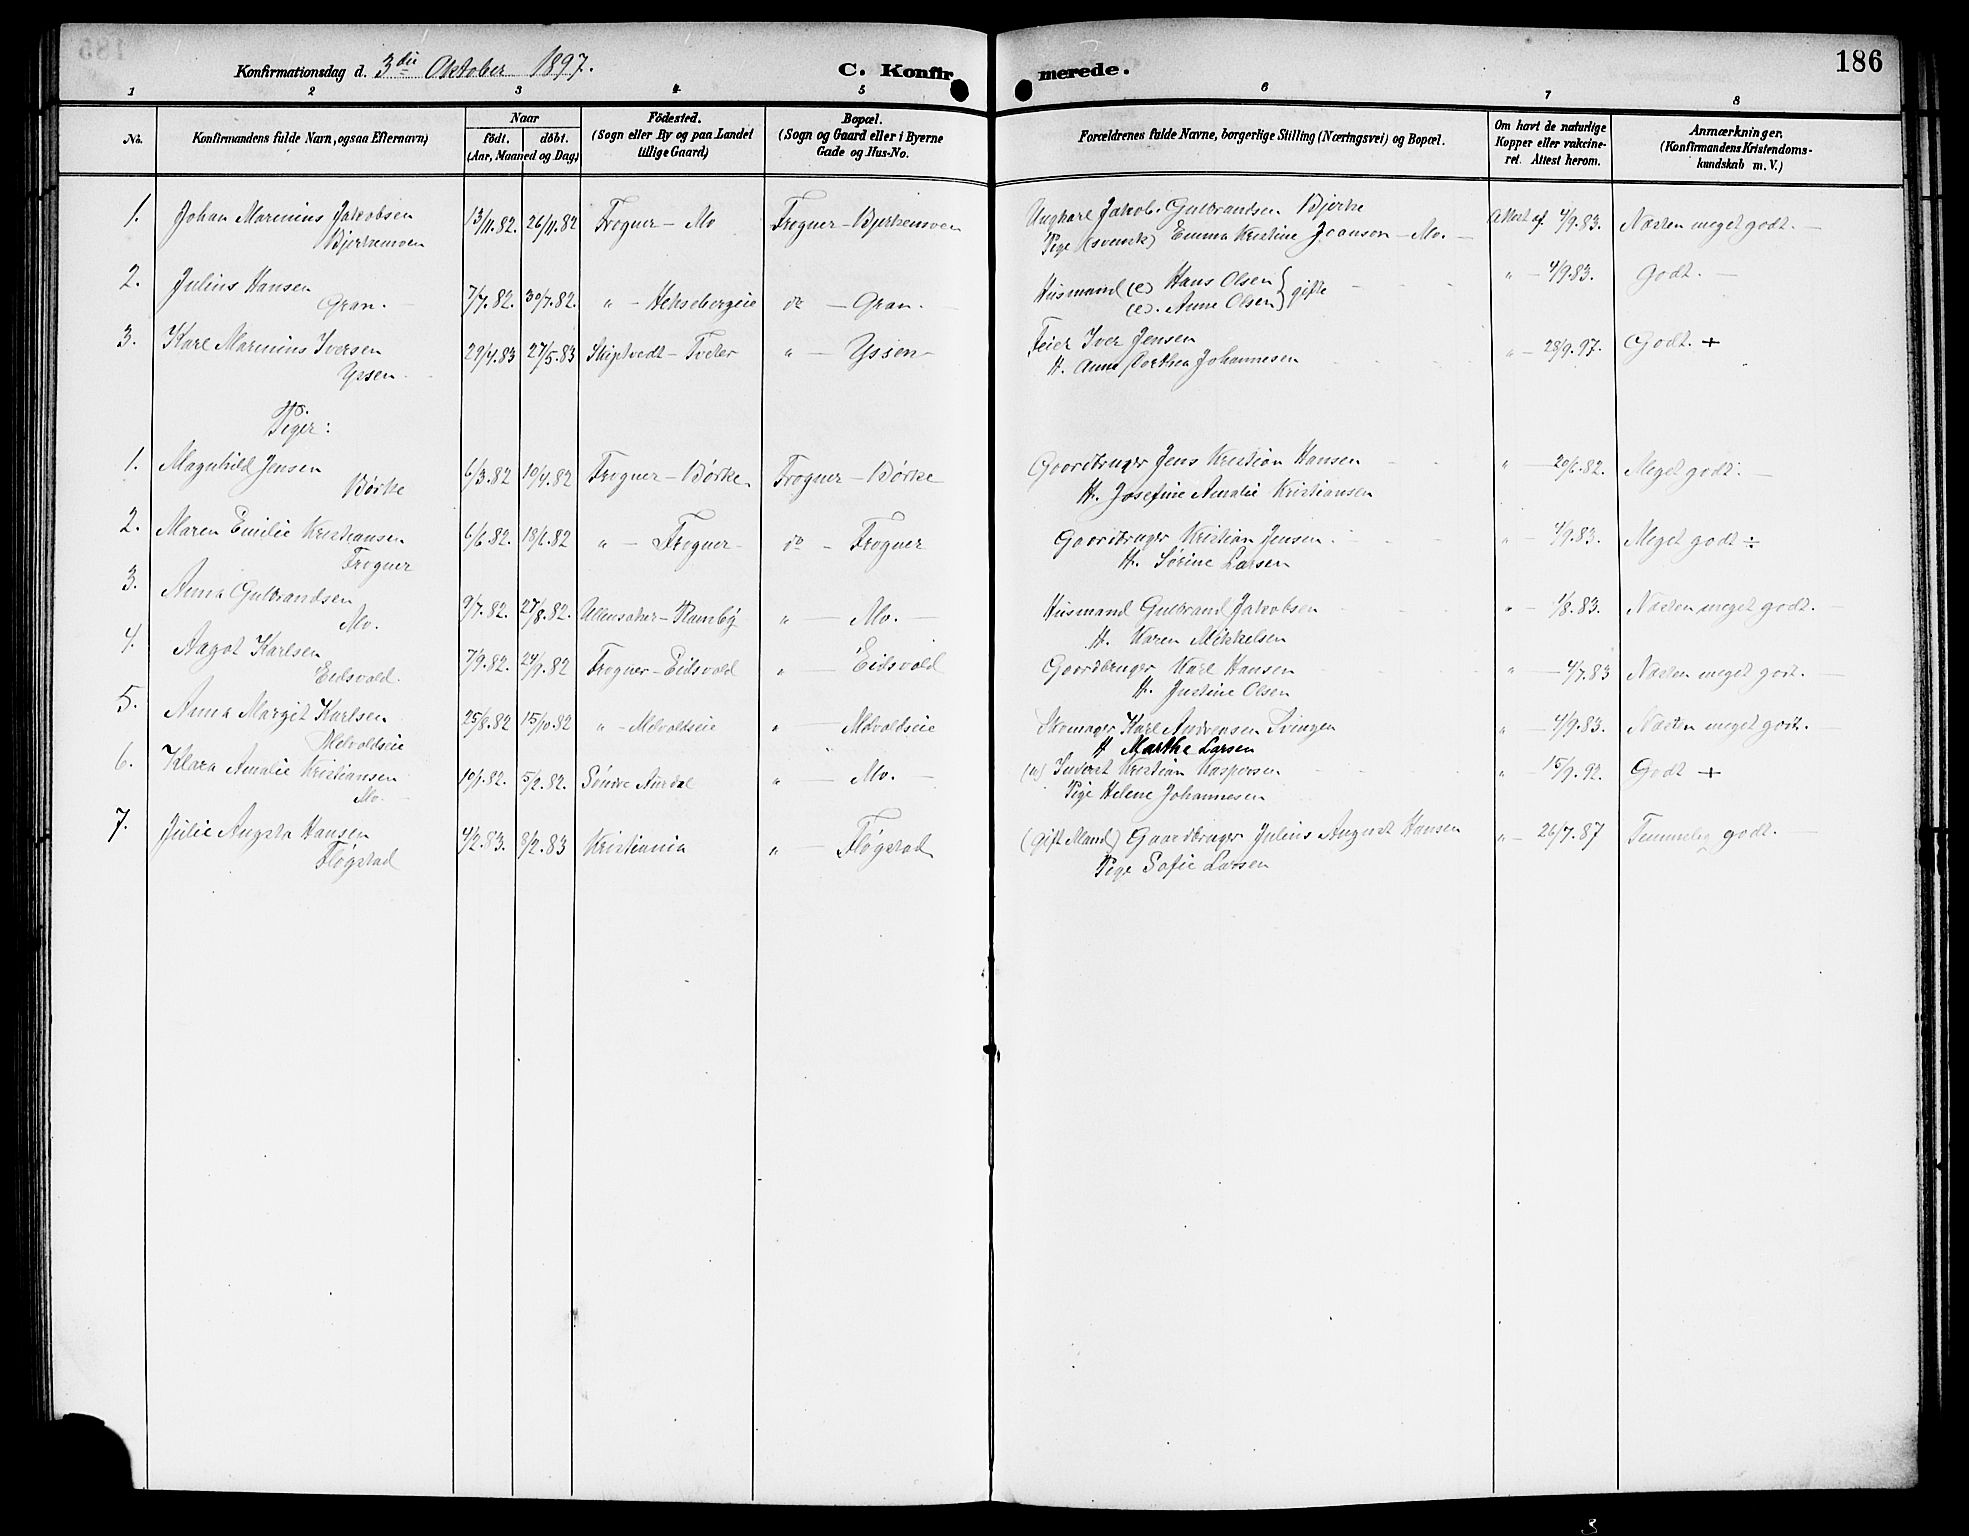 Konfirmationsdag d. 3die Oktober 1897. C. Konfirmerede. 186
1 2 3 4 5 6 7 8
No. Konfirmandens fulde Navn, ogsaa Efternavn) Naar født. døbt. (Aar, Maaned og Dag) Födested. (Sogn eller By og paa Landet tillige Gaard) Bopæl. (Sogn og Gaard eller i Byerne Gade og Hus-No. Forældrenes fulde Navne, borgerlige Stilling (Næringsvei) og Bopæl. Om havt de naturlige Kopper eller vakcineret. Attest herom. Anmærkninger. (Konfirmandens Kristendomskundskab m. V.)
1. Johan Marinius Jakobsen 13/11.82. 26/11.82 Frogner – Mo Frogner – Bjerkensven Ungkarl Jakob Gulbrandsen Bjerke Attest af 4/9.83. Næsten meget godt. –
Bjerkensven Pige (svensk) Emma Kristine Joanson – Mo. –
2. Julius Hansen 7/7.82. 30/7.82. " – Heksebergeie do – Gran. – Husmand (e) Hans Olsen } gifte " – 4/9.83. Godt. –
Gran. – (e). Anne Olsen
3. Karl Marinius Iversen 29/4.83 27/5.83 Skiptvedt – Tveter " – Yssen – Feier Iver Jensen " – 28/9.97. Godt. +
Yssen. H. Anne Dorthea Johannesen
Piger:
1. Magnhild Jensen 6/3.82 10/4.82 Frogner – Børke. Frogner – Børke Gaardbruger Jens Kristian Hansen " – 20/6.82. Meget godt. –
Børke H. Josefine Amalie Kristiansen
2. Maren Emilie Kristiansen 6/6.82. 18/6.82 " – Frogner – do – Frogner Gaardbruger Kristian Jensen. " – 4/9.83. Meget godt ÷
Frogner H. Sørine Larsen
3. Anna Gulbrandsen 9/7.82. 27/8.82. Ullensaker – Ramby " – Mo. – Husmand Gulbrand Jakobsen " – 1/8.83. Næsten meget godt. –
Mo. H. Karen Mikkelsen
4. Aagot Karlsen 7/9.82. 24/9.82 Frogner – Eidsvold " – Eidsvold Gaardbruger Karl Hansen " – 4/7.83 Næsten meget godt. –
Eidsvold. H. Justine Olsen
5. Anna Margit Karlsen 25/8.82 15/10.82 " – Melvoldseie " – Melvoldseie Skomager Karl Andreasen Svingen " – 4/9.83. Næsten meget godt. –
Melvoldseie H Marthe Larsen
6. Klara Amalie Kristiansen 10/1.82. 5/2.82. Søndre Aurdal " – Mo. – Inderst Kristian Kaspersen " – 15/9.92. Godt +
Mo. – Pige Helene Johannesen
7. Julie Augsta Hansen 4/2.83. 8/2.83 Kristiania " – Fløgstad (Gift Mand) Gaardbruger Julius August Hansen " – 26/7.87 Temmelig godt. –
Fløgstad Pige Sofie Larsen